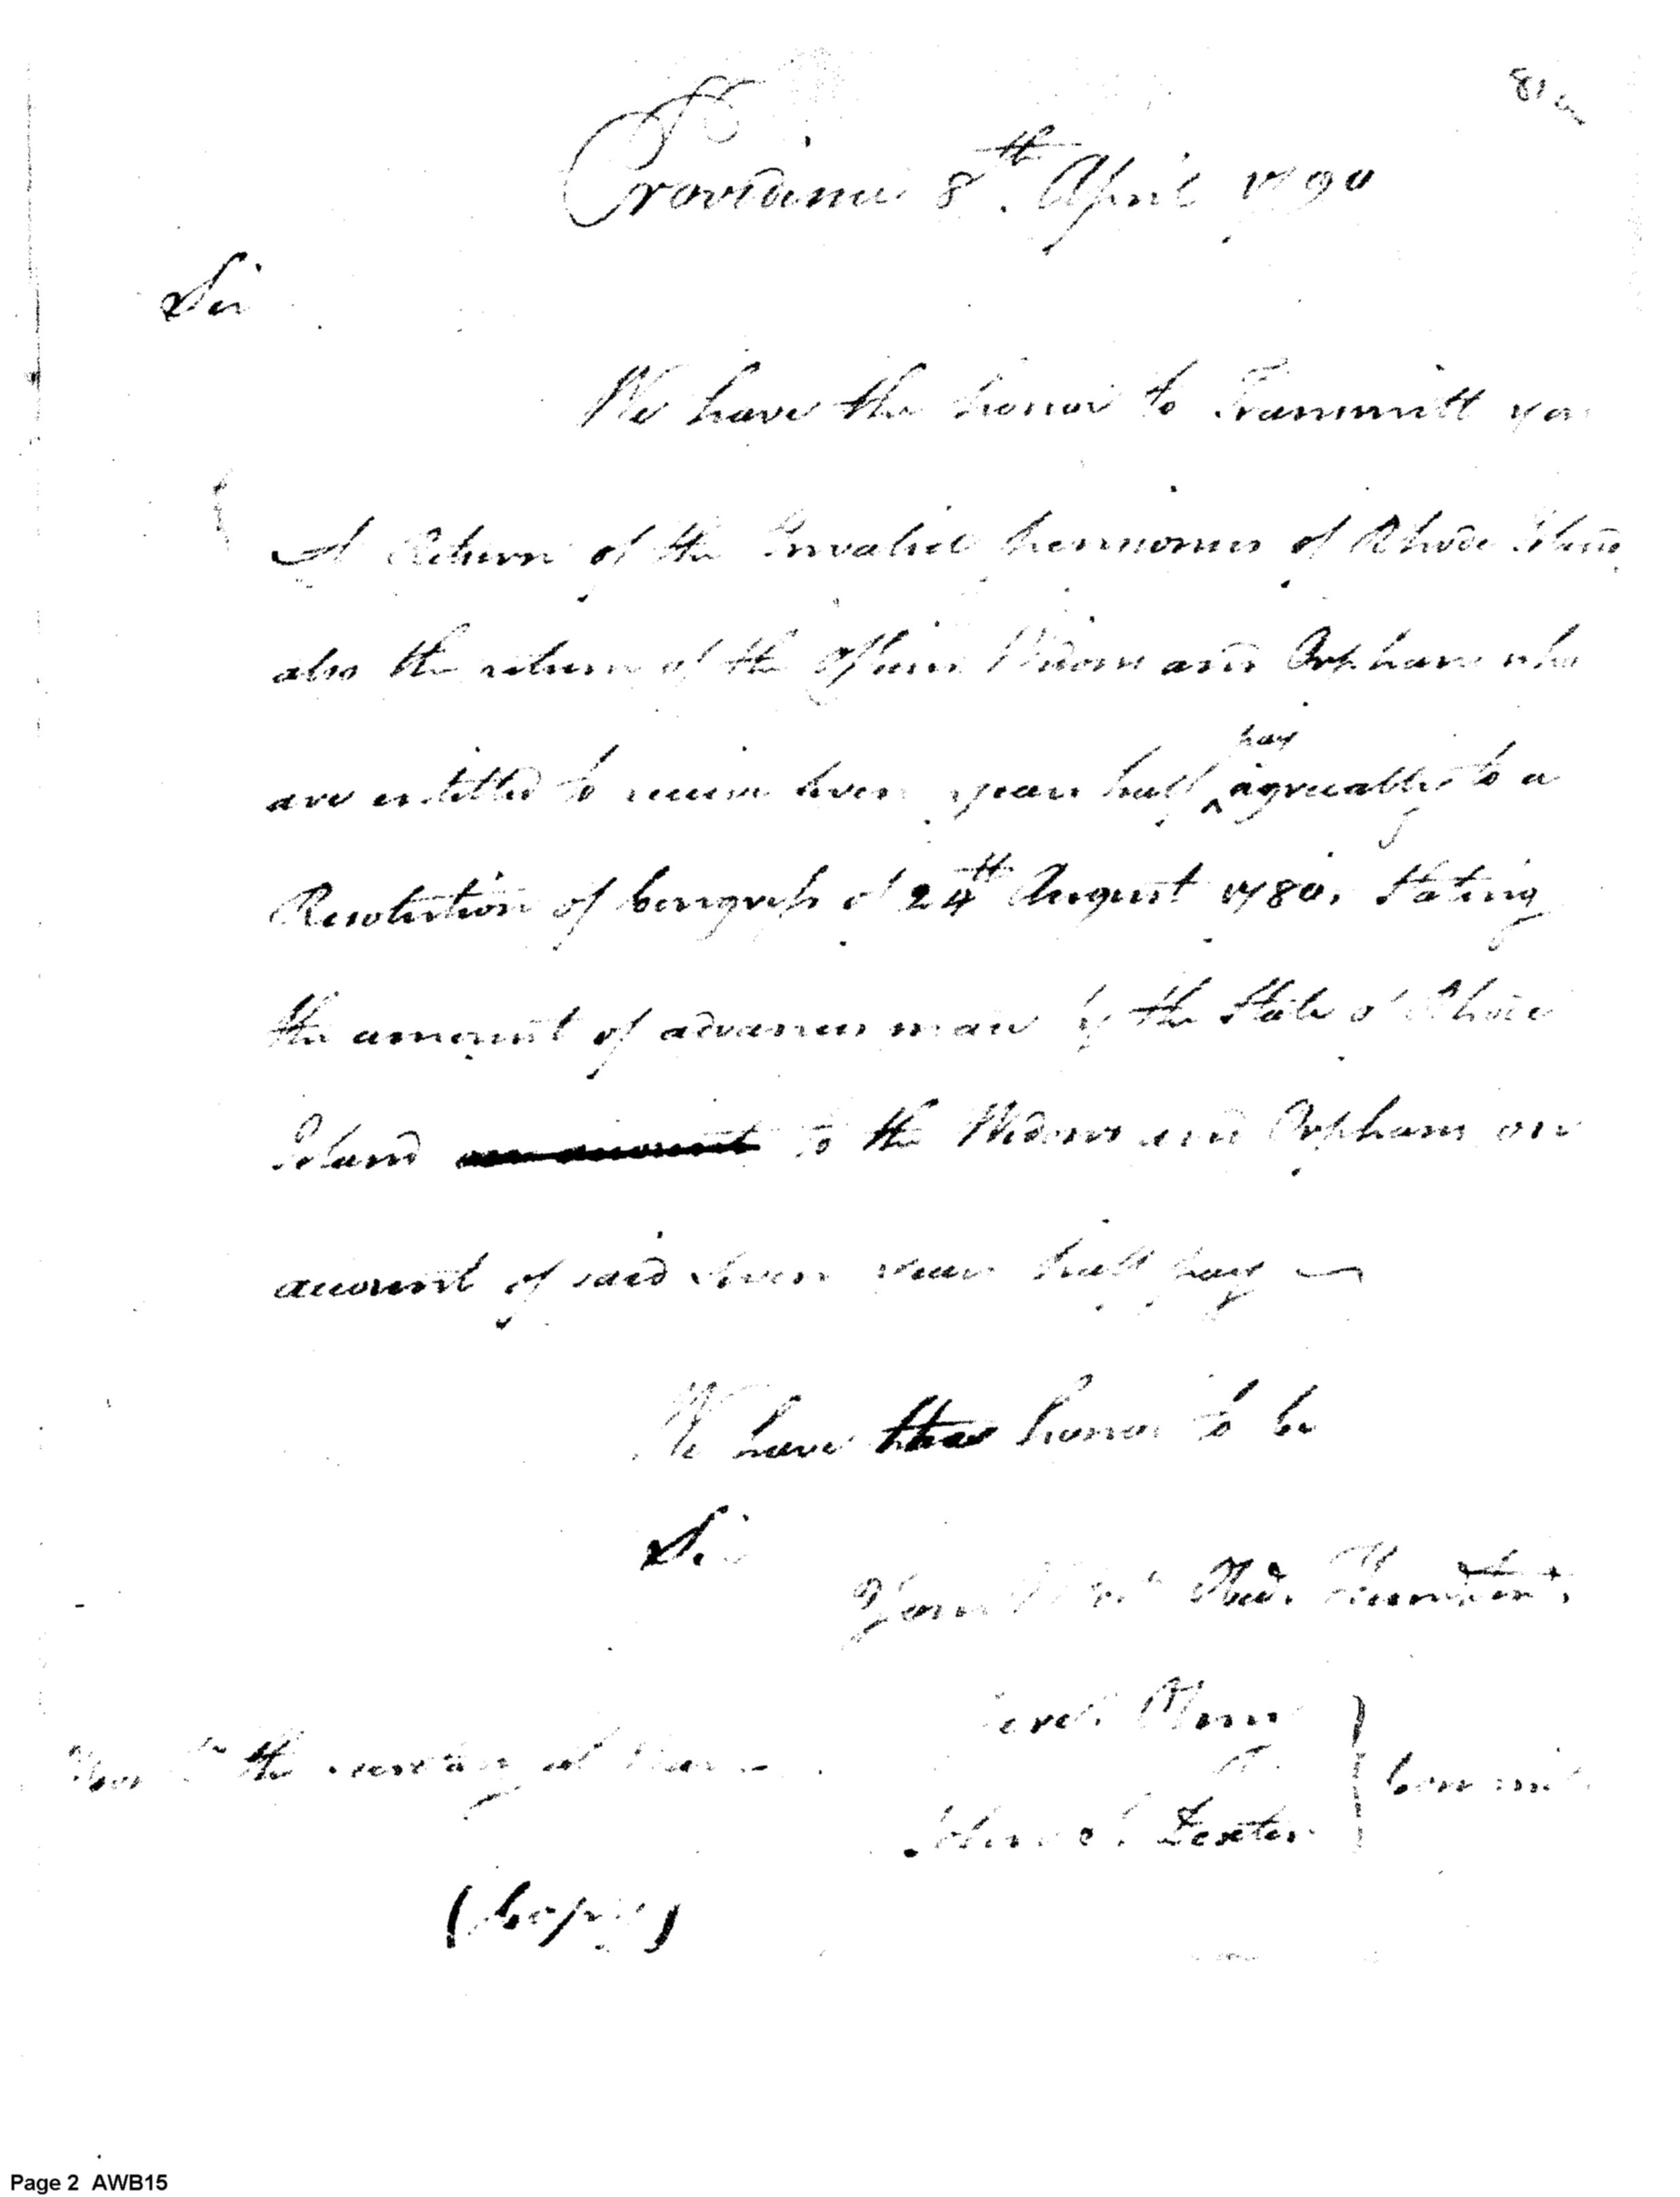 Providence 8th. April 1790
Sir
We have the honor to Transmitt you
A Return of the Invalid pensioners of Rhode Island
also the return of the Officers Widows and Orphans who
are entitled to receive seven years half pay agreeably to a
Resolution of Congress of 24th August 1780, Stating
the amount of advances made by the State of Rhode
Island to the Widows and Orphans on
account of said seven years half pay
We have the honor to be
Sir
Your Obed. Humb
Jerh. Olney
John S. Dexter
Commis
the secretary at War
(Copy)
Page 2 AWB15